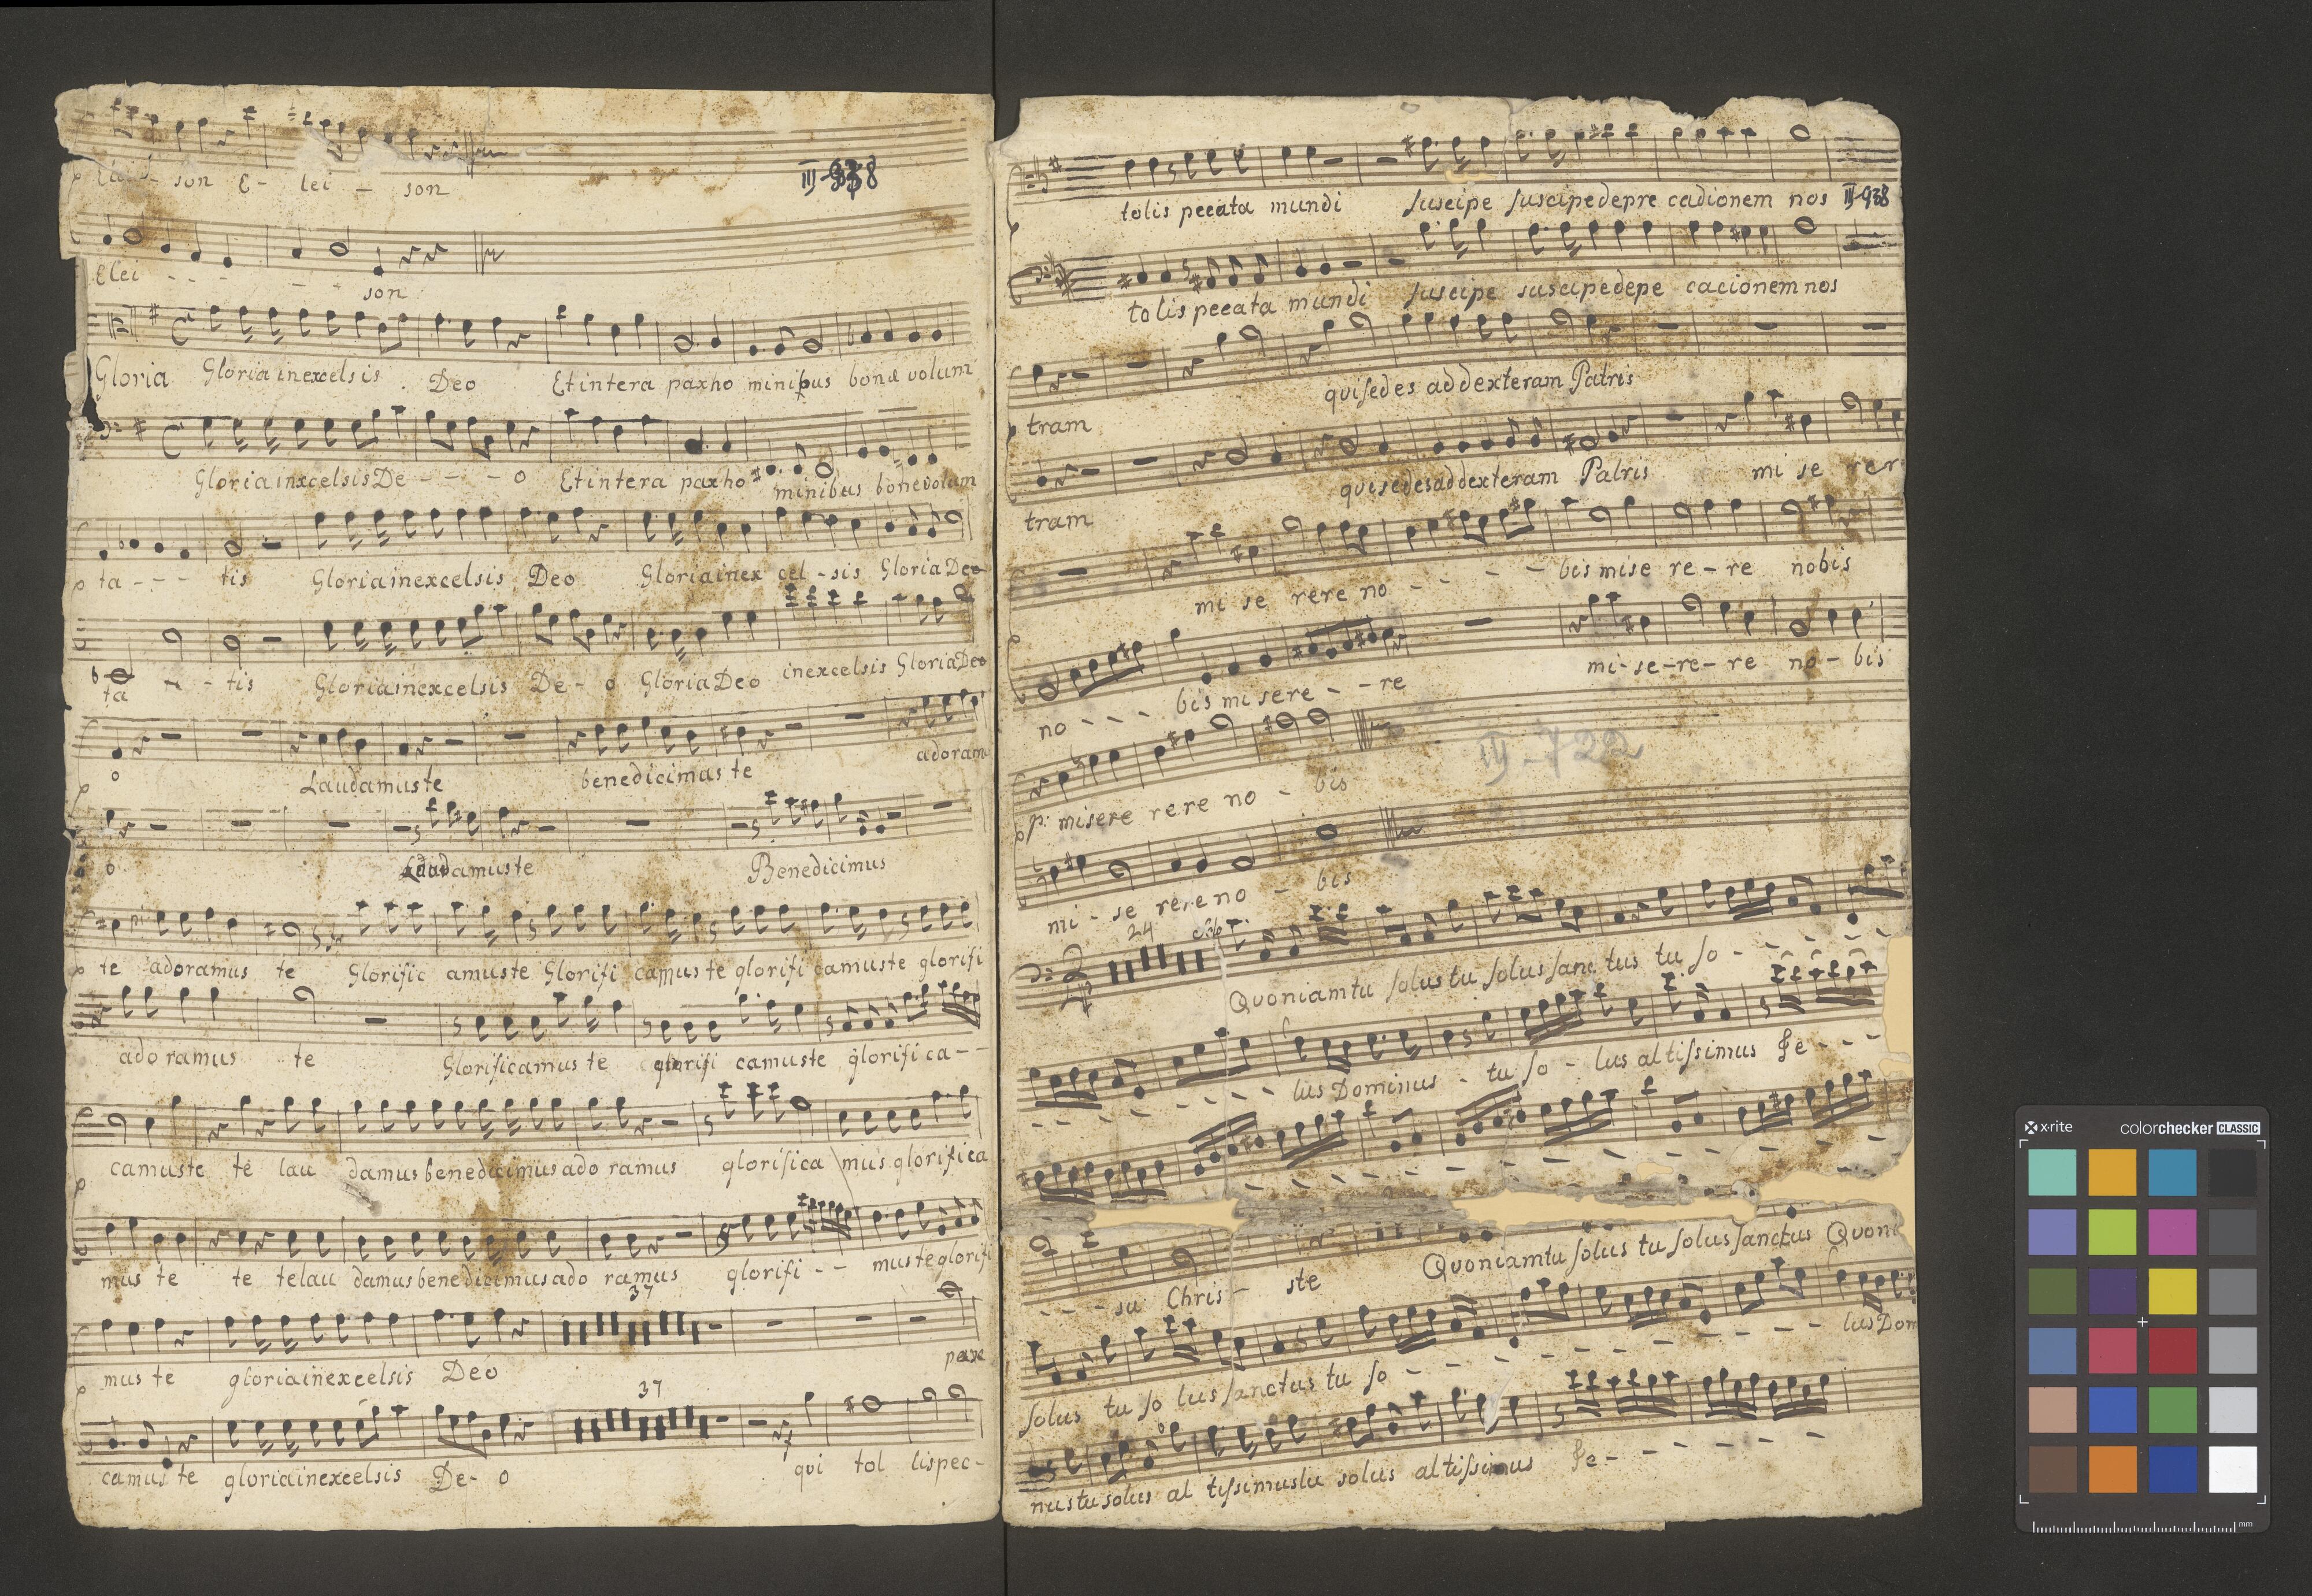 son E- lei - son
III-938
Elei - - - - - son
Gloria Gloria in excelsis . Deo Et in tera pax ho minibus bonæ volum
Gloria inxcelsis De - - - o Et in tera pax ho minibus bone volum
ta - - - tis Gloria in excelsis Deo Gloria in ex cel - sis Gloria Deo
ta - - tis Gloria in excelsis De - o Gloria Deo in excelsis Gloria Deo
o Laudamus te benedicimus te adoram
o Laudamus te Benedicimus
te adoramus te Glorific amus te Glorifi camus te glorifi camuste glorifi
adoramus te Glorificamus te glorifi camuste glorifica - -
camuste te lau damus benedicimus ado ramus glorifica mus glorifica
mus te te te lau damus benedicimus ado ramus glorifi - - mus te glorifi
37
mus te gloria in excelsis Deo pax
37
camus te gloria in excelsis De - o qui tol lis pec-
tolis pecata mundi suscipe suscipe depre cadionem nos III-938
tolis pecata mundi suscipe suscipe depe cacionem nos
tram qui sedes ad dexteram Patris
tram qui sedes ad dexteram Patris mi se rer
mi se rere no - - - - bis mise re - re nobis
no - - - bis mi sere - - re mi - se - re - re no - bis
III-722
p: misere rere no - bis
mi - se rere no - bis
24
2/4 Quoniam tu solus tu solus sanc tus tu so - - - - -
- - - - - lus Dominus - tu so - lus altissimus Je - - -
- - - su Chris - ste Quoniam tu solus tu solus sanctus Quoni
solus tu so lus sanctus tu so - - - - - - - - - lus Dom
nus tu solus al tissimus tu solus altissimus Je - - - - - -